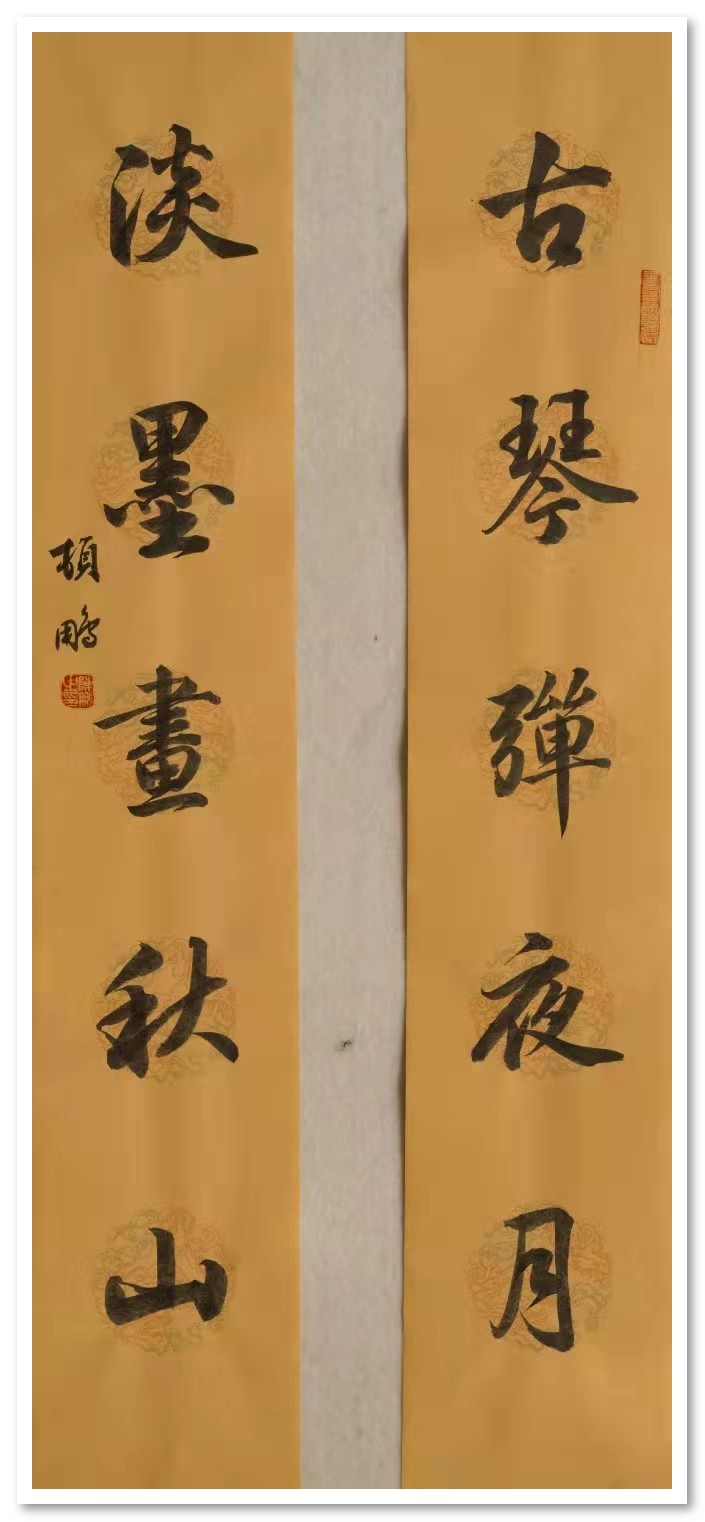 古琴彈夜月
淡墨畫秋山
頓鵬